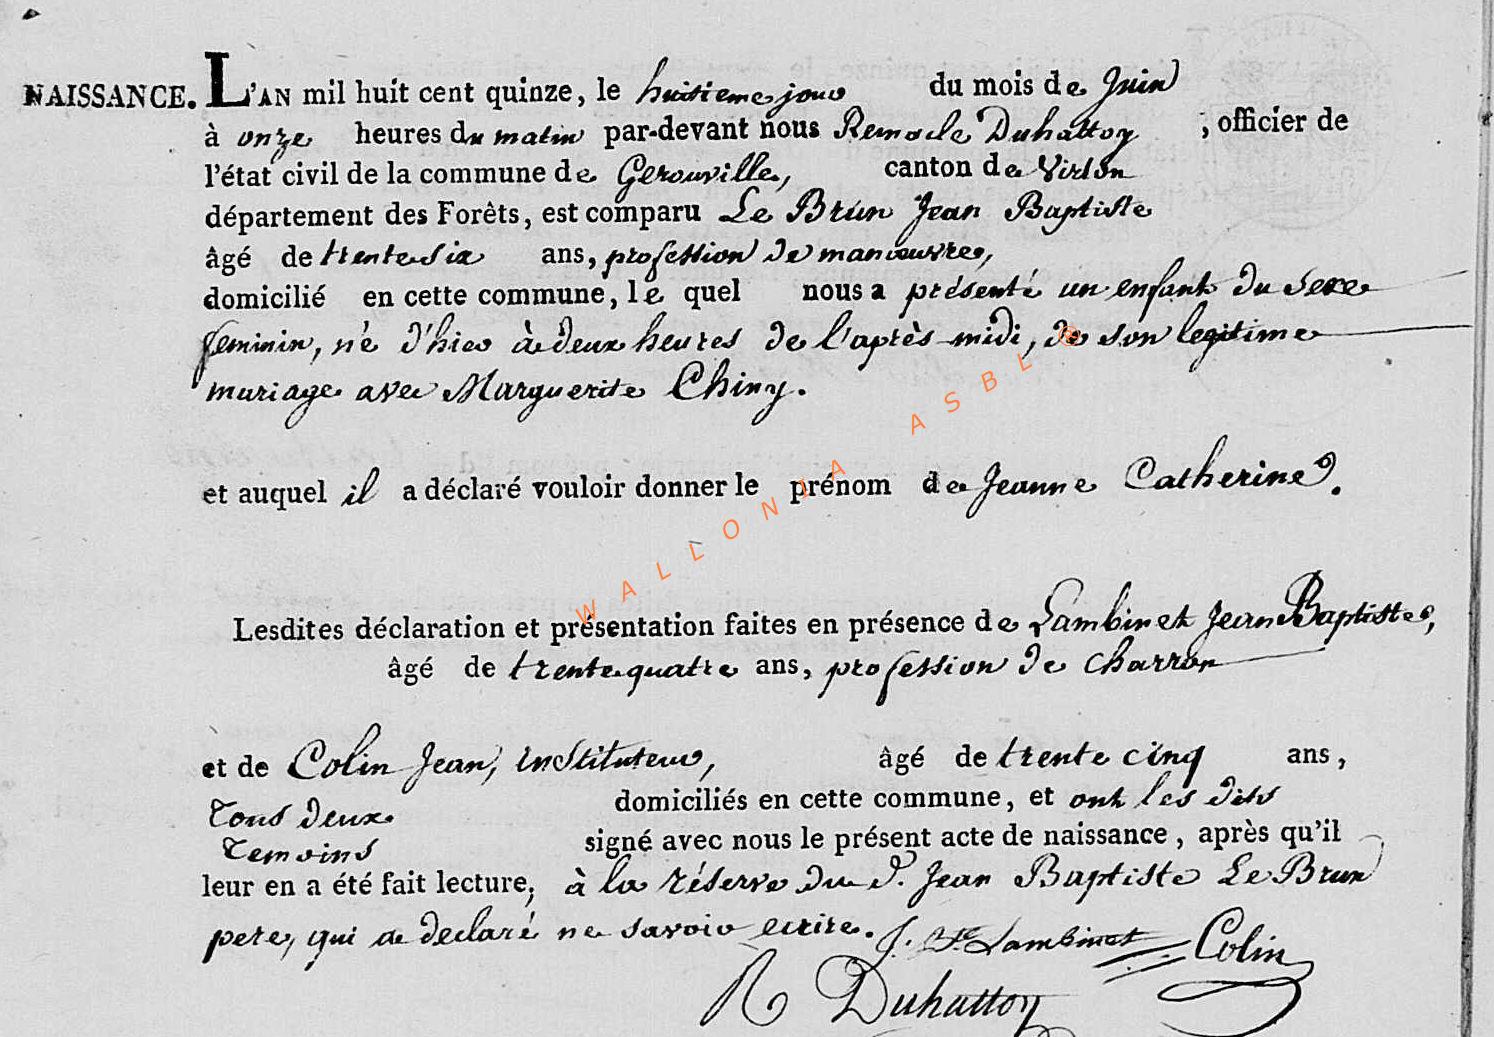 NAISSANCE. L'AN mil huit cent quinze, le huitieme jour du mois de Juin
à onze heures du matin par-devant nous Remacle Duhattoy, officier de
l'état civil de la commune de Gerouville, canton de Virton
département des Forêts, est comparu Le Brun Jean Baptiste
âgé de trente six ans, profession de manœuvre,
domicilié en cette commune, le quel nous a présenté un enfant du sexe
feminin, né d'hier à deux heures de l'après-midi, de son legitime
mariage avec Marguerite Chiny.
et auquel il a déclaré vouloir donner le prénom de Jeanne Catherine.
Lesdites déclaration et présentation faites en présence de Lambinet Jean Baptiste,
âgé de trente quatre ans, profession de charron
et de Colin Jean, instituteur, âgé de trente cinq ans,
tous deux domiciliés en cette commune, et ont les dits
temoins signé avec nous le présent acte de naissance, après qu'il
leur en a été fait lecture, à la réserve du d. Jean Baptiste Le Brun
pere, qui a declaré ne savoir ecrire. J. Bte Lambinet Colin
R Duhattoy
WALLONIA ASBL ®